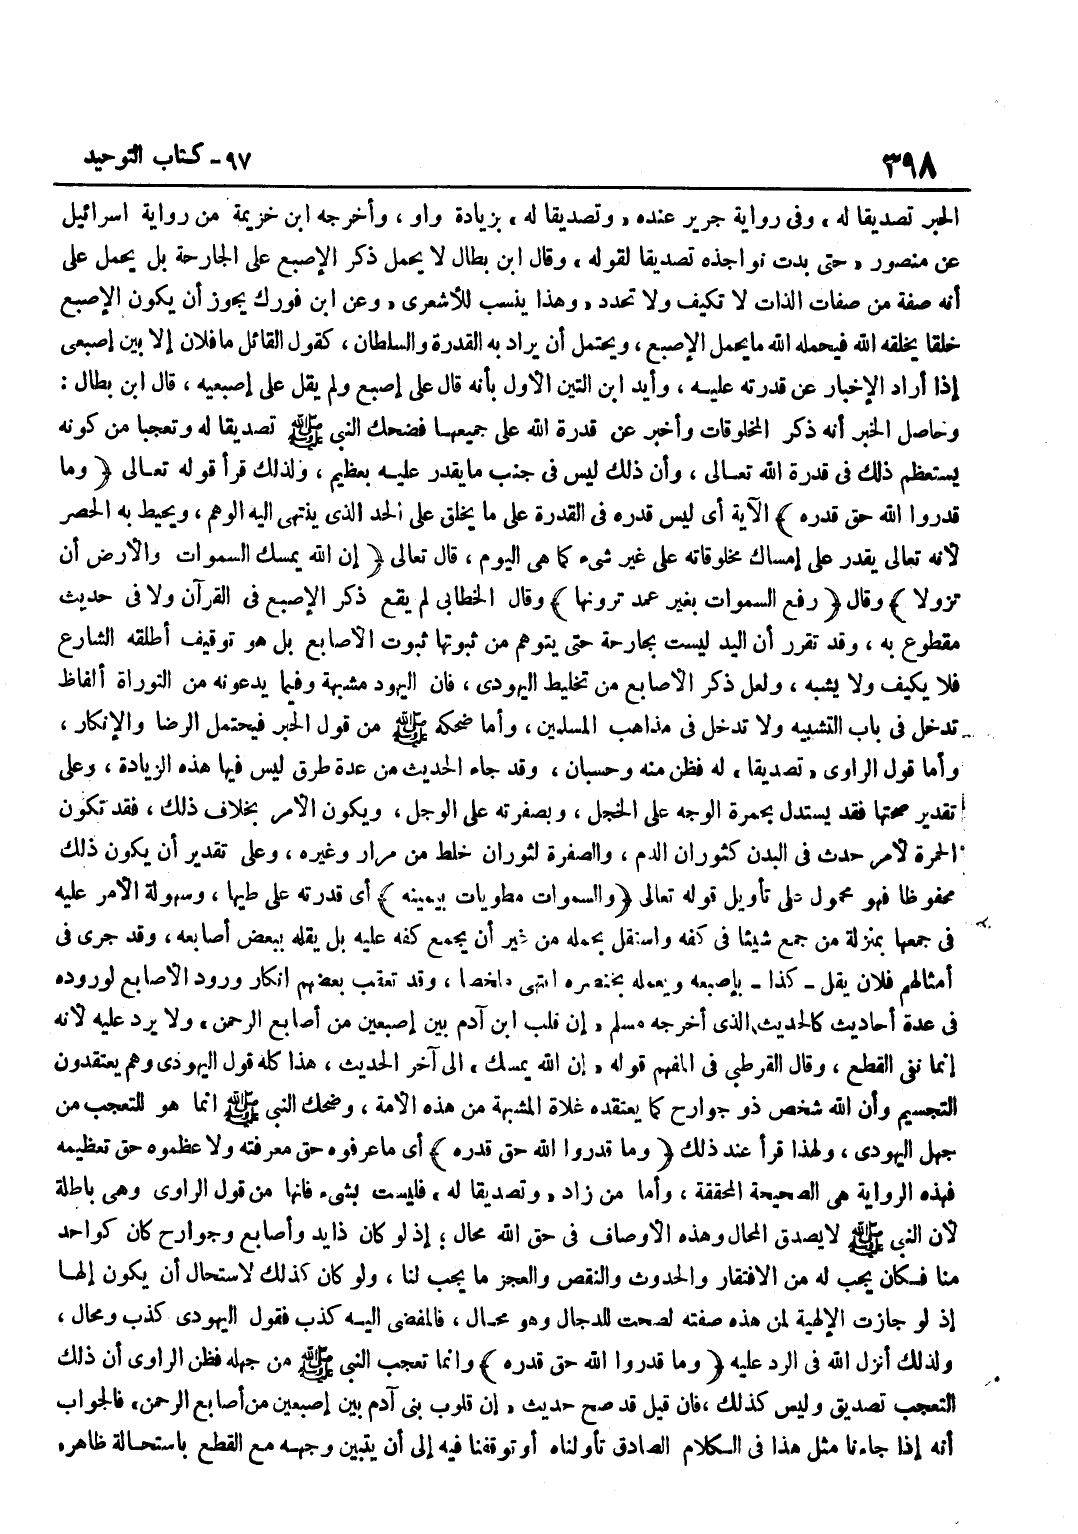 ٣٩٨
٩٧ - كتاب التوحيد
الحبر تصديقا له ، وفى رواية جرير عنده « وتصديقا له » بزيادة واو ، وأخرجه ابن خزيمة من رواية اسرائيل
عن منصور « حتى بدت نواجذه تصديقا لقوله » وقال ابن بطال لا يحمل ذكر الإصبع على الجارحة بل يحمل على
أنه صفة من صفات الذات لا تكيف ولا تحدد « وهذا ينسب للأشعرى » وعن ابن فورك يجوز أن يكون الإصبع
خلقا يخلقه الله فيحمله الله مايحمل الإصبع ، ويحتمل أن يراد به القدرة والسلطان ، كقول القائل مافلان إلا بين إصبعى
إذا أراد الإخبار عن قدرته عليه ، وأيد ابن التين الأول بأنه قال على إصبع ولم يقل على إصبعيه ، قال ابن بطال :
وحاصل الخبر أنه ذكر المخلوقات وأخبر عن قدرة الله على جميعها فضحك النبى ﷺ تصديقا له وتعجبا من كونه
يستعظم ذلك فى قدرة الله تعالى ، وأن ذلك ليس فى جنب مايقدر عليه بعظيم ، ولذلك قرأ قوله تعالى ﴿ وما
قدروا الله حق قدره ﴾ الآية أى ليس قدره فى القدرة على ما يخلق على الحد الذى ينتهى اليه الوهم ، ويحيط به الحصر
لأنه تعالى يقدر على إمساك مخلوقاته على غير شىء كما هى اليوم ، قال تعالى ﴿ إن الله يمسك السموات والأرض أن
تزولا ﴾ وقال ﴿ رفع السموات بغير عمد ترونها ﴾ وقال الخطابى لم يقع ذكر الإصبع فى القرآن ولا فى حديث
مقطوع به ، وقد تقرر أن اليد ليست بجارحة حتى يتوهم من ثبوتها ثبوت الأصابع بل هو توقيف أطلقه الشارع
فلا يكيف ولا يشبه ، ولعل ذكر الأصابع من تخليط اليهودى ، فان اليهود مشبهة وفيما يدعونه من التوراة ألفاظ
تدخل فى باب التشبيه ولا تدخل فى مذاهب المسلمين ، وأما ضحكه ﷺ من قول الحبر فيحتمل الرضا والإنكار ،
وأما قول الراوى « تصديقا » له فظن منه وحسبان ، وقد جاء الحديث من عدة طرق ليس فيها هذه الزيادة ، وعلى
تقدير صحتها فقد يستدل بحمرة الوجه على الخجل ، وبصفرته على الوجل ، ويكون الأمر بخلاف ذلك ، فقد تكون
الحمرة لأمر حدث فى البدن كثوران الدم ، والصفرة لثوران خلط من مرار وغيره ، وعلى تقدير أن يكون ذلك
محفوظا فهو محمول على تأويل قوله تعالى ﴿ والسموات مطويات بيمينه ﴾ أى قدرته على طيها ، وسهولة الأمر عليه
فى جمعها بمنزلة من جمع شيئا فى كفه واستقل بحمله من غير أن يجمع كفه عليه بل يقله ببعض أصابعه ، وقد جرى فى
أمثالهم فلان يقل - كذا - بإصبعه ويعمله بخنصره انتهى ملخصا ، وقد تعقب بعضهم انكار ورود الأصابع لوروده
فى عدة أحاديث كالحديث الذى أخرجه مسلم « إن قلب ابن آدم بين إصبعين من أصابع الرحمن » ولا يرد عليه لأنه
إنما نفى القطع ، وقال القرطبى فى المفهم قوله « إن الله يمسك » الى آخر الحديث ، هذا كله قول اليهودى وهم يعتقدون
التجسيم وأن الله شخص ذو جوارح كما يعتقده غلاة المشبهة من هذه الأمة ، وضحك النبى ﷺ انما هو للتعجب من
جهل اليهودى ، ولهذا قرأ عند ذلك ﴿ وما قدروا الله حق قدره ﴾ أى ماعرفوه حق معرفته ولا عظموه حق تعظيمه
فهذه الرواية هى الصحيحة المحققة ، وأما من زاد « وتصديقا له » فليست بشىء فانها من قول الراوى وهى باطلة
لأن النبى ﷺ لايصدق المحال وهذه الأوصاف فى حق الله محال ؛ إذ لو كان ذا يد وأصابع وجوارح كان كواحد
منا فكان يجب له من الافتقار والحدوث والنقص والعجز ما يجب لنا ، ولو كان كذلك لاستحال أن يكون إلها
إذ لو جازت الإلهية لمن هذه صفته لصحت للدجال وهو محال ، فالمفضى اليه كذب فقول اليهودى كذب ومحال ،
ولذلك أنزل الله فى الرد عليه ﴿ وما قدروا الله حق قدره ﴾ وانما تعجب النبى ﷺ من جهله فظن الراوى أن ذلك
التعجب تصديق وليس كذلك ، فان قيل قد صح حديث « إن قلوب بنى آدم بين إصبعين من أصابع الرحمن » فالجواب
أنه إذا جاءنا مثل هذا فى الكلام الصادق تأولناه أو توقفنا فيه إلى أن يتبين وجهه مع القطع باستحالة ظاهره